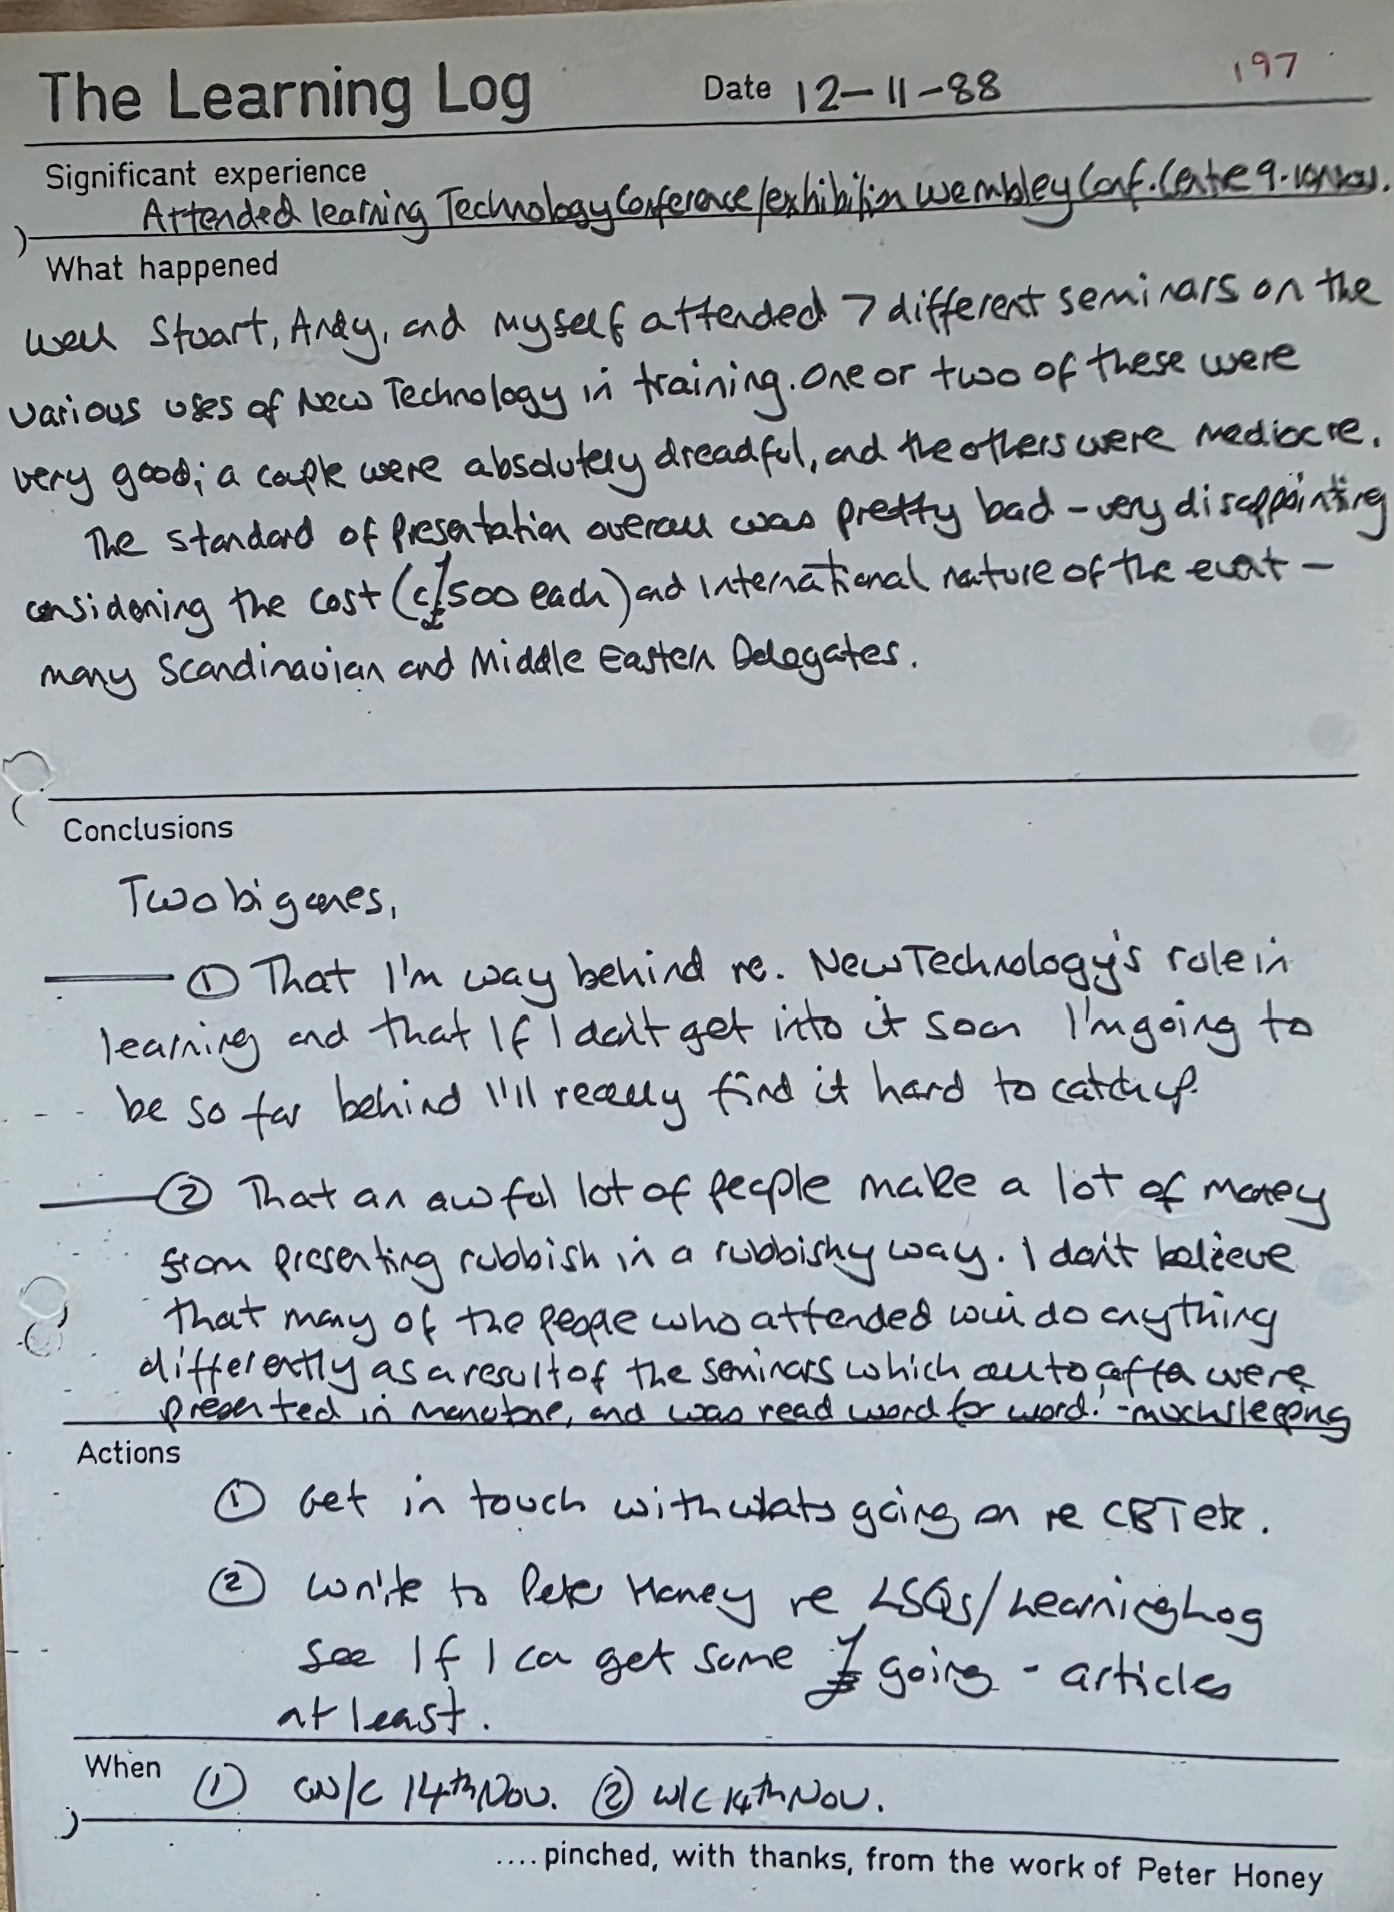 The Learning Log Date 12-11-88 197
Significant experience
Attended learning Technology Conference/exhibition Wembley Conf. Centre 9-10 Nov.
What happened
Well Stuart, Andy, and myself attended 7 different seminars on the
various uses of New Technology in training. One or two of these were
very good; a couple were absolutely dreadful, and the others were mediocre.
The standard of presentation overall was pretty bad - very disappointing
considering the cost (c£500 each) and International nature of the event -
many Scandinavian and Middle Eastern Delegates.
Conclusions
Two big ones,
① That I'm way behind re. New Technology's role in
learning and that If I don't get into it soon I'm going to
be so far behind I'll really find it hard to catch up.
② That an awful lot of people make a lot of money
from presenting rubbish in a rubbishy way. I don't believe
that many of the people who attended will do anything
differently as a result of the seminars which all too often were
presented in monotone, and was read word for word! - much sleeping
Actions
① Get in touch with whats going on re CBT etc.
② Write to Peter Honey re LSQs/Learning Log
See If I can get some £ going - articles
at least.
When ① W/C 14th Nov. ② W/C 14th Nov.
.... pinched, with thanks, from the work of Peter Honey